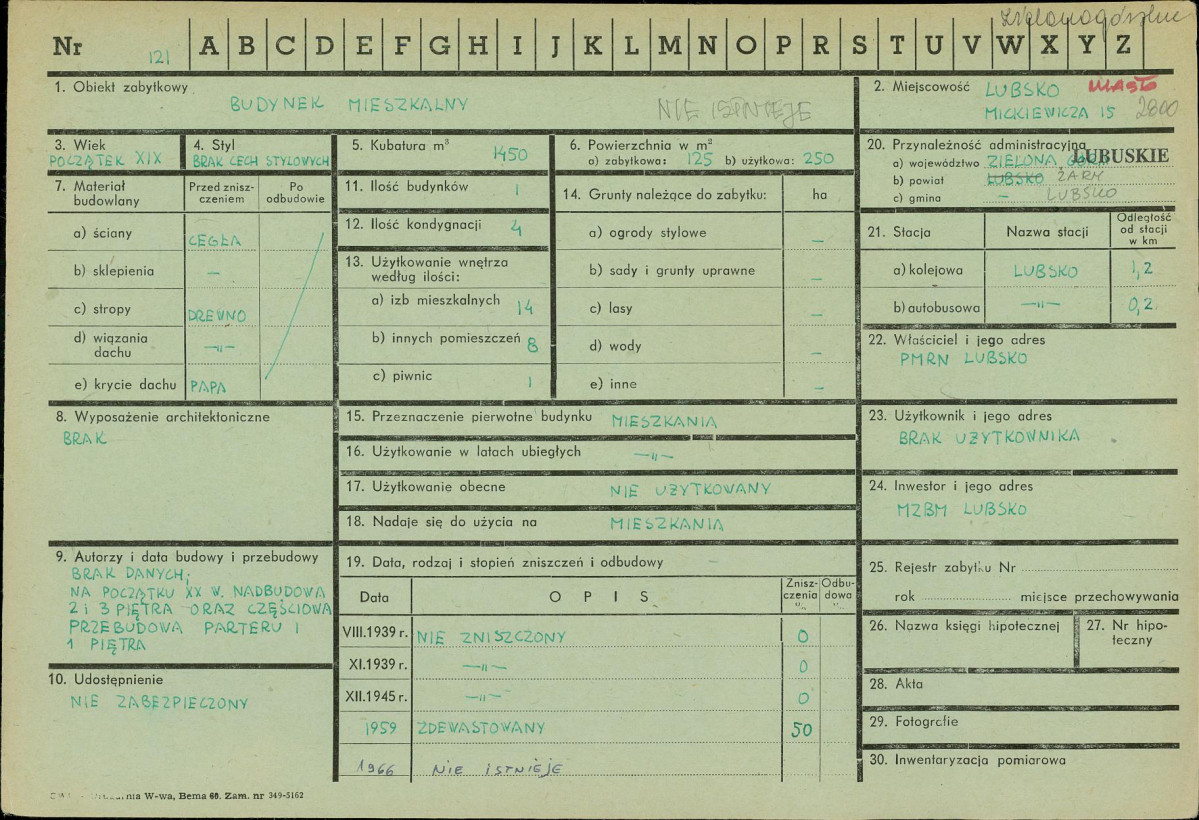 Zielonogórskie
Nr 121 A B C D E F G H I J K L M N O P R S T U V W X Y Z
1. Obiekt zabytkowy
BUDYNEK MIESZKALNY NIE ISTNIEJE
2. Miejscowość LUBSKO MIASTO
MICKIEWICZA 15 2800
3. Wiek
POCZĄTEK XIX
4. Styl
BRAK CECH STYLOWYCH
5. Kubatura m³ 1450
6. Powierzchnia w m²
a) zabytkowa: 125 b) użytkowa: 250
20. Przynależność administracyjna
a) województwo ZIELONA GÓRA LUBUSKIE
b) powiat LUBSKO ŻARY
c) gmina — LUBSKO
7. Materiał budowlany
Przed zniszczeniem
Po odbudowie
a) ściany CEGŁA
b) sklepienia —
c) stropy DREWNO
d) wiązania dachu —"—
e) krycie dachu PAPA
11. Ilość budynków 1
12. Ilość kondygnacji 4
13. Użytkowanie wnętrza według ilości:
a) izb mieszkalnych 14
b) innych pomieszczeń 8
c) piwnic 1
14. Grunty należące do zabytku: ha
a) ogrody stylowe —
b) sady i grunty uprawne —
c) lasy —
d) wody —
e) inne —
21. Stacja Nazwa stacji Odległość od stacji w km
a) kolejowa LUBSKO 1,2
b) autobusowa —"— 0,2
22. Właściciel i jego adres
PMRN LUBSKO
8. Wyposażenie architektoniczne
BRAK
15. Przeznaczenie pierwotne budynku MIESZKANIA
16. Użytkowanie w latach ubiegłych —"—
17. Użytkowanie obecne NIE UŻYTKOWANY
18. Nadaje się do użycia na MIESZKANIA
23. Użytkownik i jego adres
BRAK UŻYTKOWNIKA
24. Inwestor i jego adres
MZBM LUBSKO
9. Autorzy i data budowy i przebudowy
BRAK DANYCH,
NA POCZĄTKU XX W. NADBUDOWA
2 i 3 PIĘTRA ORAZ CZĘŚCIOWA
PRZEBUDOWA PARTERU I
1 PIĘTRA
10. Udostępnienie
NIE ZABEZPIECZONY
19. Data, rodzaj i stopień zniszczeń i odbudowy —
Data OPIS Zniszczenia % Odbudowa %
VIII.1939 r. NIE ZNISZCZONY 0
XI.1939 r. —"— 0
XII.1945 r. —"— 0
1959 ZDEWASTOWANY 50
1966 NIE ISTNIEJE
25. Rejestr zabytku Nr
rok miejsce przechowywania
26. Nazwa księgi hipotecznej
27. Nr hipoteczny
28. Akta
29. Fotografie
30. Inwentaryzacja pomiarowa
W-wa, Bema 60. Zam. nr 349-5162